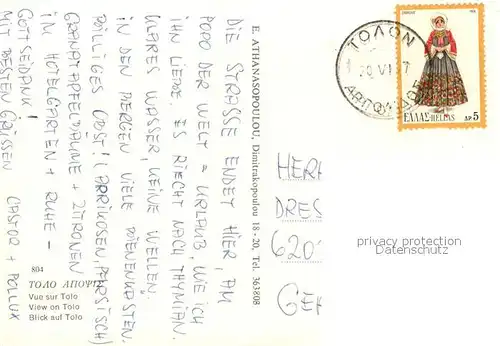 DIE STRASSE ENDET HIER, AM
POPO DER WELT = URLAUB, WIE ICH
IHN LIEBE. ES RIECHT NACH THYMIAN.
KLARES WASSER, KEINE WELLEN.
IN DEN BERGEN VIELE BIENENKÄSTEN.
BILLIGES OBST! (APRIKOSEN, PFIRSICH)
GRANATAPFELBÄUME + ZITRONEN
IM HOTELGARTEN + RUHE –
GOTTSEIDANK!
MIT BESTEN GRÜSSEN
CASTOR + POLLUX
804
ΤΟΛΟ ΑΠΟΨΙΣ
Vue sur Tolo
View on Tolo
Blick auf Tolo
E. ATHANASOPOULOU, Dimitrakopoulou 18 - 20, Tel. 363808
ΤΟΛΟΝ
20 VI
ΕΛΛΑΣ-HELLAS ΔΡ 5
HERR
DRES
620
GE
privacy protection
Datenschutz